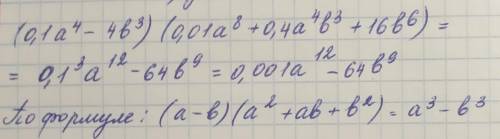 (0,1a⁴ - 4b³) (0,01a⁸ + 0,4a⁴b³ + 16b⁶) =
= 0,1³a¹² - 64b⁹ = 0,001a¹² - 64b⁹
По формуле: (a-b)(a² + ab + b²) = a³ - b³